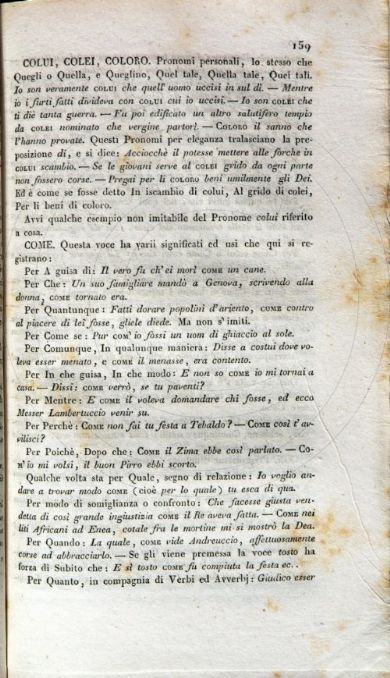 159
COLUI, COLEI, COLORO. Pronomi personali, lo stesso che
Quegli o Quella, e Queglino, Quel tale, Quella tale, Quei tali.
Io son veramente COLUI che quell'uomo uccisi in sul dì. — Mentre
io i furti fatti divideva con COLUI cui io uccisi. — Io son COLEI che
ti diè tanta guerra. — Fu poi edificato un altro salutifero tempio
da COLEI nominato che vergine partorì. — COLORO il sanno che
l'hanno provate. Questi Pronomi per eleganza tralasciano la pre-
posizione di, e si dice: Acciocchè il potesse mettere alle forche in
COLUI scambio. — Se le giovani serve al COLEI grido da ogni parte
non fossero corse. — Pregai per li COLORO beni umilmente gli Dei.
Ed è come se fosse detto In iscambio di colui, Al grido di colei,
Per li beni di coloro.
Avvi qualche esempio non imitabile del Pronome colui riferito
a cosa.
COME. Questa voce ha varii significati ed usi che qui si re-
gistrano:
Per A guisa di: Il vero fu ch'ei morì COME un cane.
Per Che: Un suo famigliare mandò a Genova, scrivendo alla
donna, COME tornato era.
Per Quantunque: Fatti dorare popolini d'ariento, COME contro
al piacere di lei fosse, gliele diede. Ma non s'imiti.
Per Come se: Pur COM'io fossi un uom di ghiaccio al sole.
Per Comunque, In qualunque maniera: Disse a costui dove vo-
leva esser menato, e COME il menasse, era contento.
Per In che guisa, In che modo: E non so COME io mi tornai a
casa. — Dissi: COME verrò, se tu paventi?
Per Mentre: E COME il voleva domandare chi fosse, ed ecco
Messer Lambertuccio venir su.
Per Perchè: COME non fai tu festa a Tebaldo? — COME così t'av-
vilisci?
Per Poichè, Dopo che: COME il Zima ebbe così parlato. — Co-
m'io mi volsi, il buon Pirro ebbi scorto.
Qualche volta sta per Quale, segno di relazione: Io voglio an-
dare a trovar modo COME (cioè per lo quale) tu esca di qua.
Per modo di somiglianza o confronto: Che facesse giusta ven-
detta di così grande ingiustizia COME il Re aveva fatta. — COME nei
liti Africani ad Enea, cotale fra le mortine mi si mostrò la Dea.
Per Quando: La quale, COME vide Andreuccio, affettuosamente
corse ad abbracciarlo. — Se gli viene premessa la voce tosto ha
forza di Subito che: E sì tosto COME fu compiuta la festa ec..
Per Quanto, in compagnia di Verbi ed Avverbj: Giudico esser